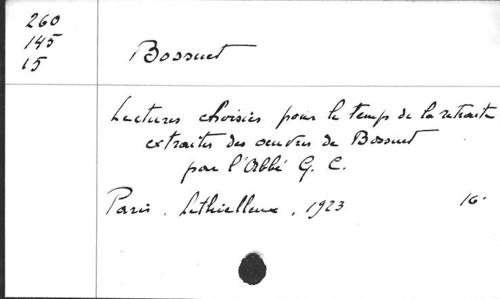 260
145
15
Bossuet
Lectures choisies pour le temps de la retraite
extraites des œuvres de Bossuet
par l'Abbé G. C.
Paris. Lethielleux, 1923 16.